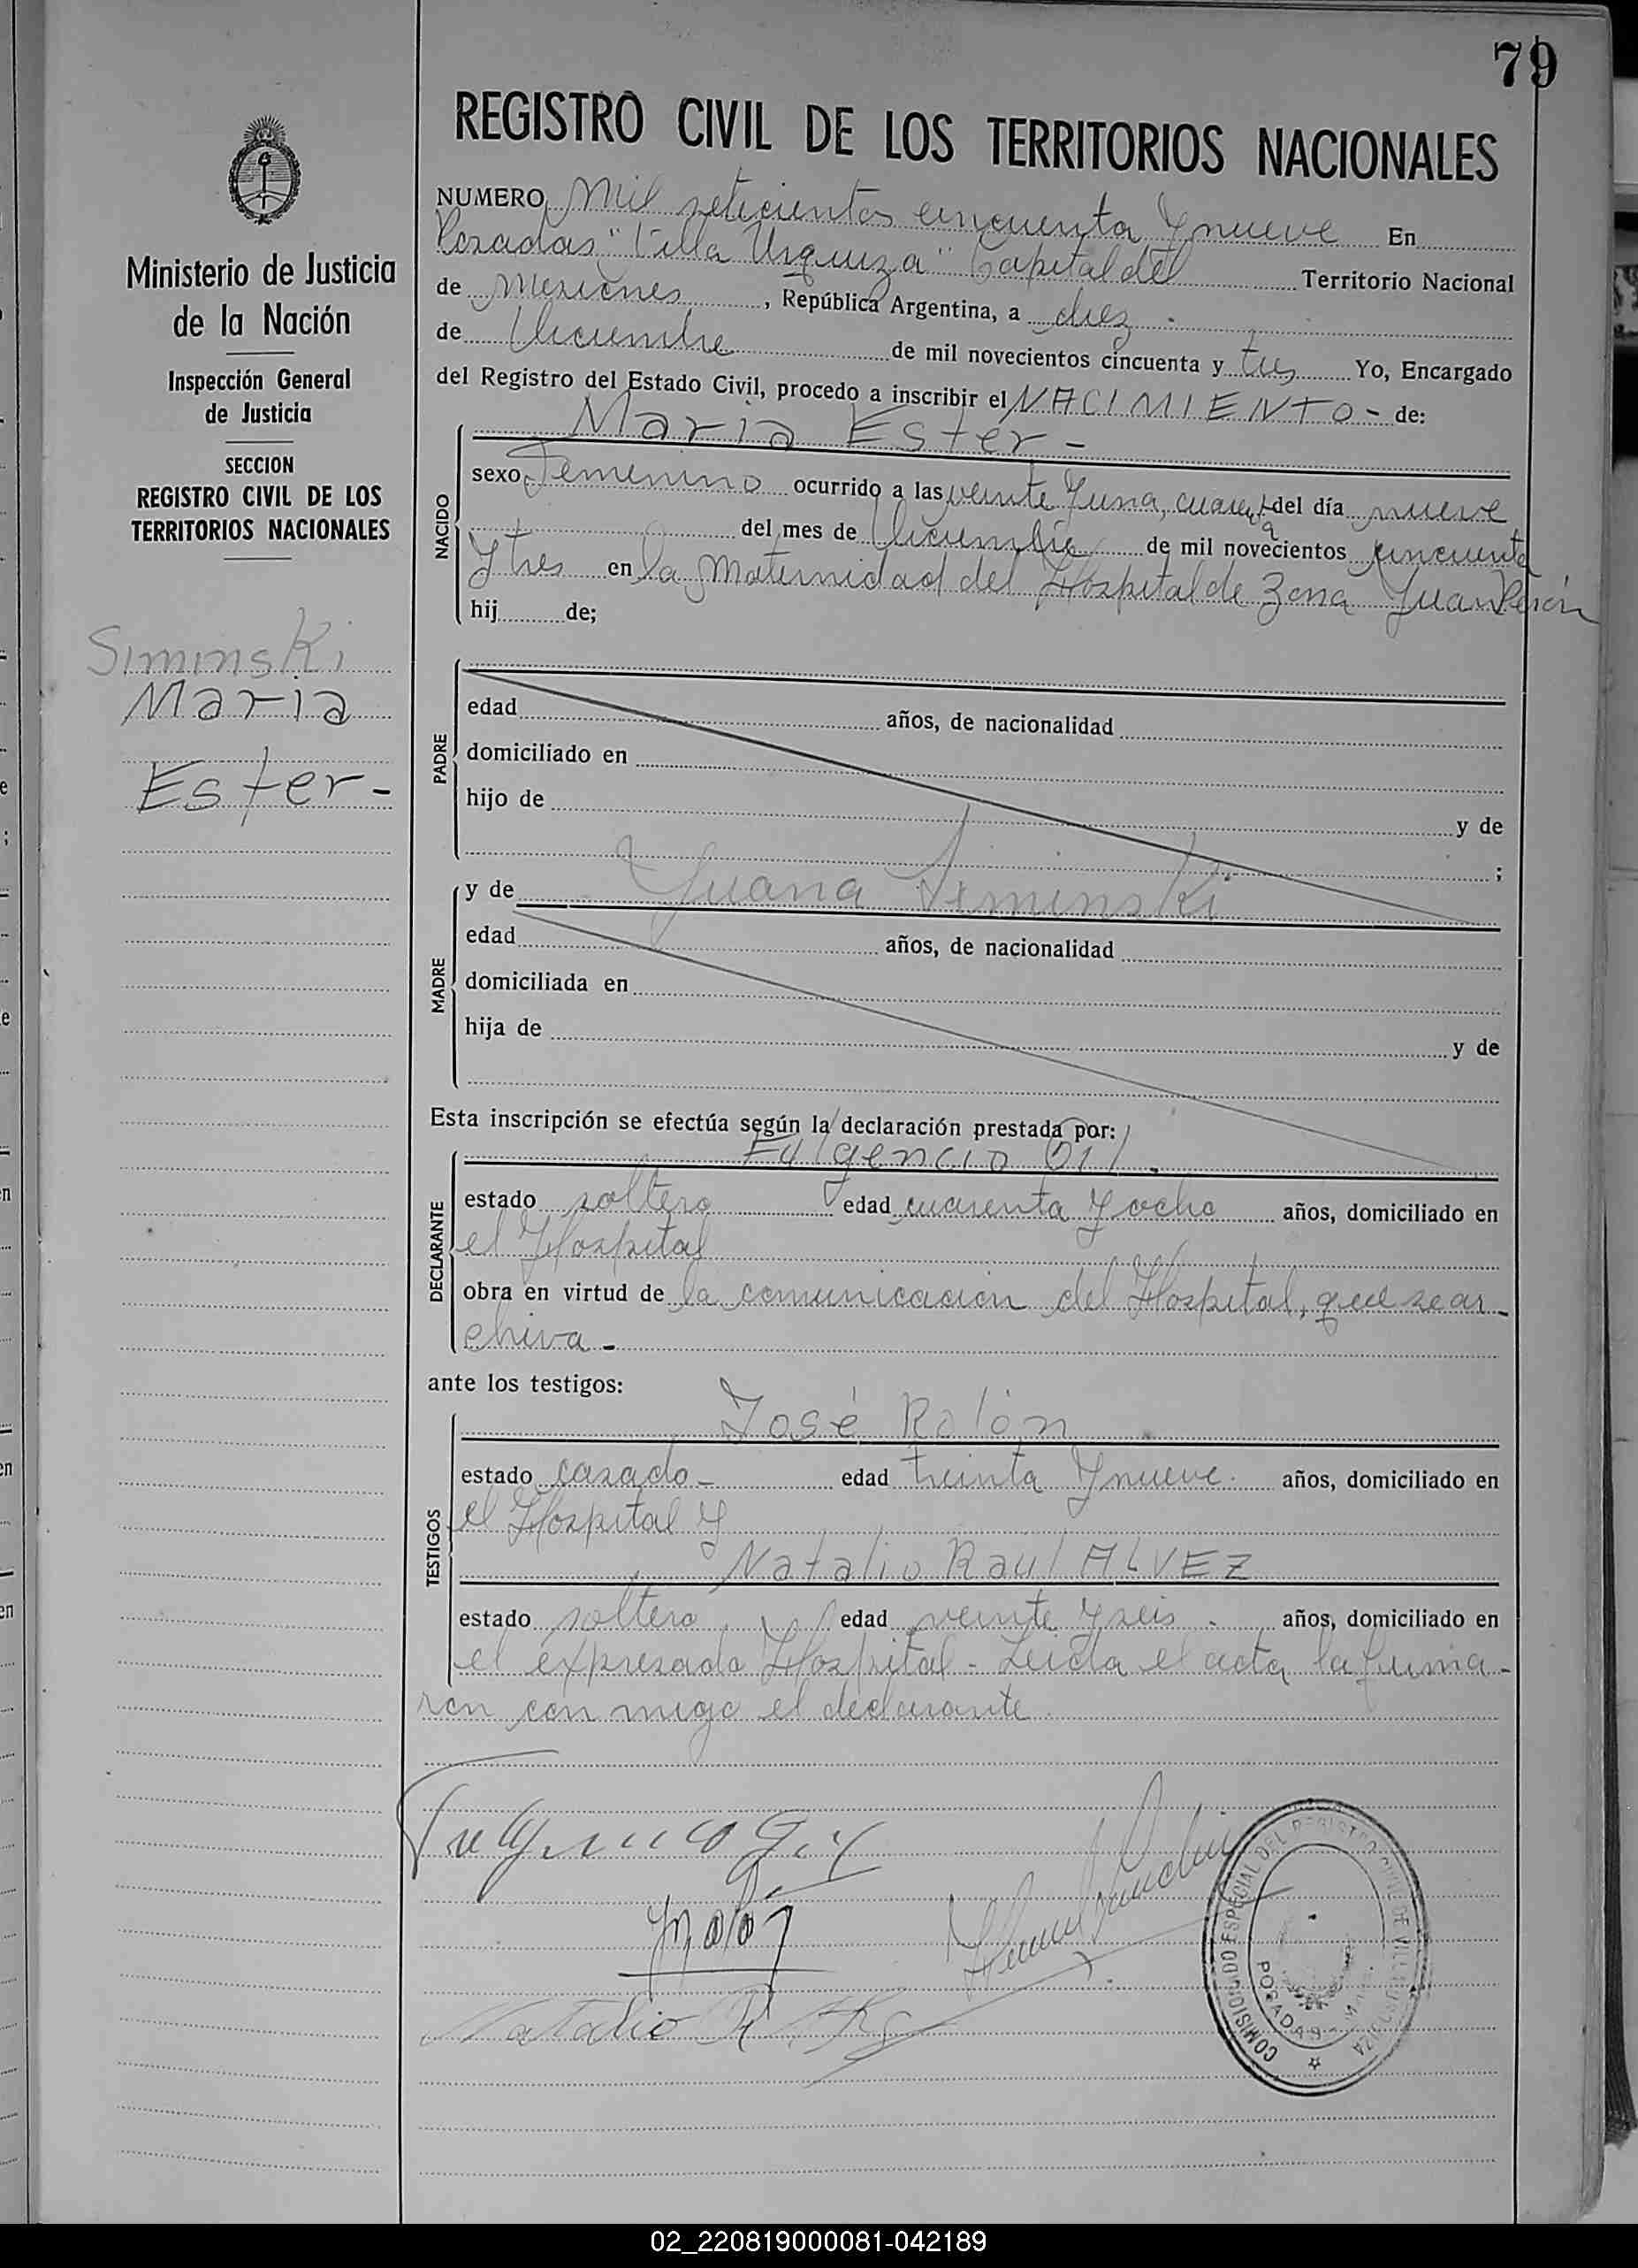 79
REGISTRO CIVIL DE LOS TERRITORIOS NACIONALES
Ministerio de Justicia
de la Nación
Inspección General
de Justicia
SECCION
REGISTRO CIVIL DE LOS
TERRITORIOS NACIONALES
Siminski
Maria
Ester-
NUMERO Mil seticientos cincuenta y nueve En
Posadas "Villa Urquiza" Capital del Territorio Nacional
de Misiones, República Argentina, a diez -
de Diciembre de mil novecientos cincuenta y tres Yo, Encargado
del Registro del Estado Civil, procedo a inscribir el NACIMIENTO- de:
Maria Ester-
NACIDO
sexo Femenino ocurrido a las veinte y una, cuarenta del día nueve
del mes de Diciembre de mil novecientos cincuenta
y tres en la Maternidad del Hospital de Zona Juan Perón
hij de;
PADRE
edad años, de nacionalidad
domiciliado en
hijo de y de
;
MADRE
y de Juana Siminski
edad años, de nacionalidad
domiciliada en
hija de y de
Esta inscripción se efectúa según la declaración prestada por:
Fulgencio Gil.
DECLARANTE
estado soltero edad cuarenta y ocho años, domiciliado en
el Hospital
obra en virtud de la comunicacion del Hospital, que se ar-
chiva.-
ante los testigos:
José Rolón
TESTIGOS
estado casado- edad treinta y nueve. años, domiciliado en
el Hospital y
Natalio Raul ALVEZ
estado soltero edad veinte y seis. años, domiciliado en
el expresado Hospital - Leida el acta la firma-
ron con migo el declarante.
Fulgencio Gil
Natalio R.
COMISIONADO ESPECIAL DEL REGISTRO CIVIL DE VILLA URQUIZA
POSADAS
02_220819000081-042189